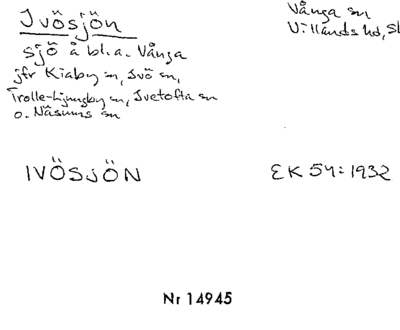 Ivösjön
Vånga sn
Villands hd, Sk
sjö å bl.a. Vånga
jfr Kiaby sn, Ivö sn,
Trolle-Ljungby sn, Ivetofta sn
o. Näsums sn
IVÖSJÖN
EK 54:1932
Nr 14945